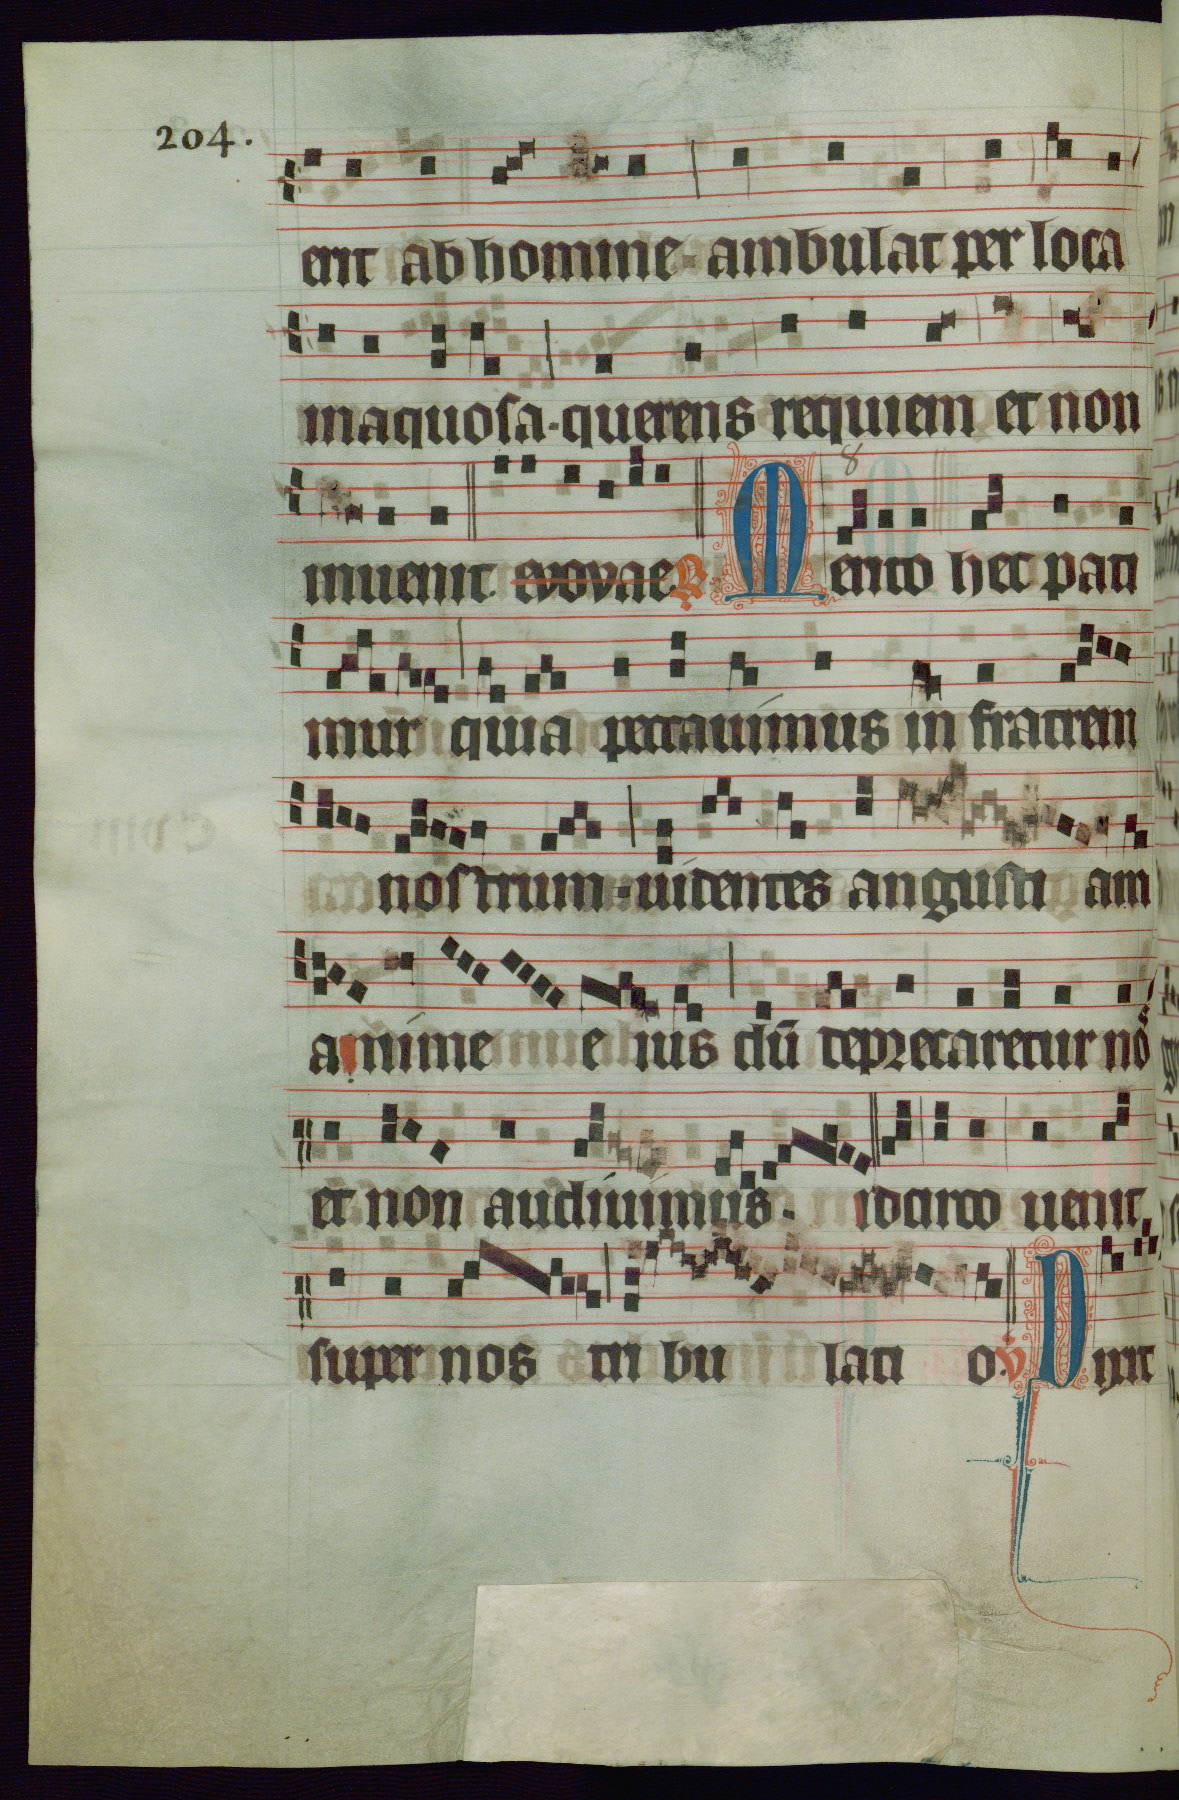 204.
erit ab homine · ambulat per loca
inaquosa · querens requiem et non
8
inuenit. evovae R Merito hec pati
mur quia peccauimus in fratrem
nostrum · uidentes angusti am
anime e ius dū deprecaretur nō
et non audiuimus · Idcirco uenit
super nos tri bu lati o. V Dixit